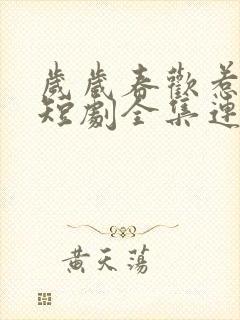 歲歲春歡惹
短劇全集連
黃天蕩